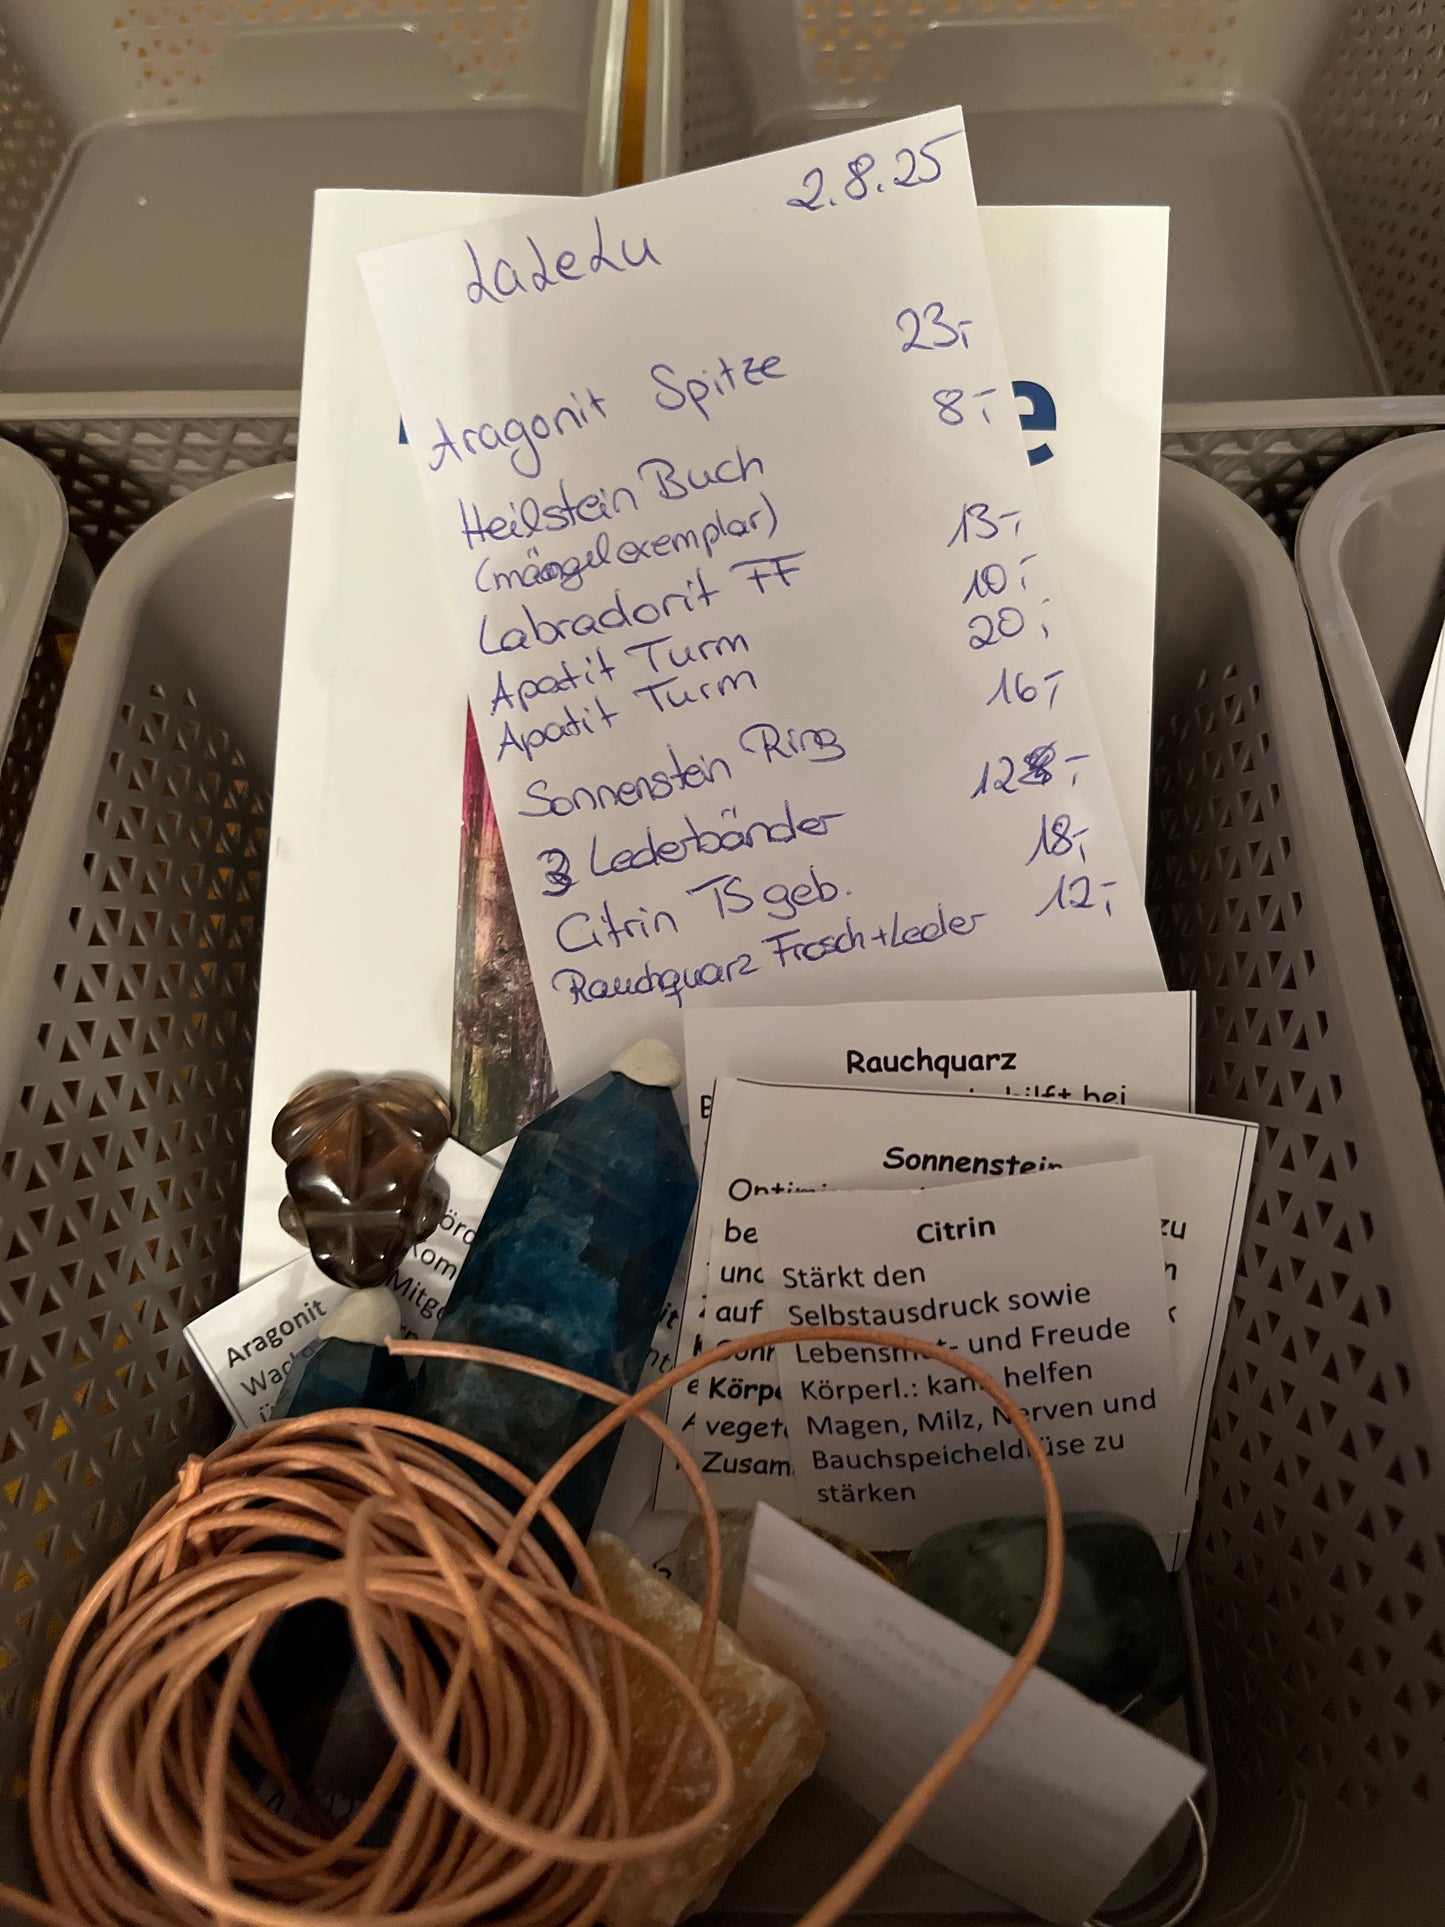 2.8.25
LaLeLu
Aragonit Spitze 23,-
Heilstein Buch 8,-
(mängelexemplar)
Labradorit FF 13,-
Apatit Turm 10,-
Apatit Turm 20,-
Sonnenstein Ring 16,-
3 Lederbänder 12,-
Citrin TS geb. 18,-
Rauchquarz Frosch+Leder 12,-
e
Rauchquarz
hilft bei
Sonnenstein
be
zu
und
auf
Körpe
veget
Zusam
Citrin
Stärkt den
Selbstausdruck sowie
Lebensmut- und Freude
Körperl.: kann helfen
Magen, Milz, Nerven und
Bauchspeicheldrüse zu
stärken
Aragonit